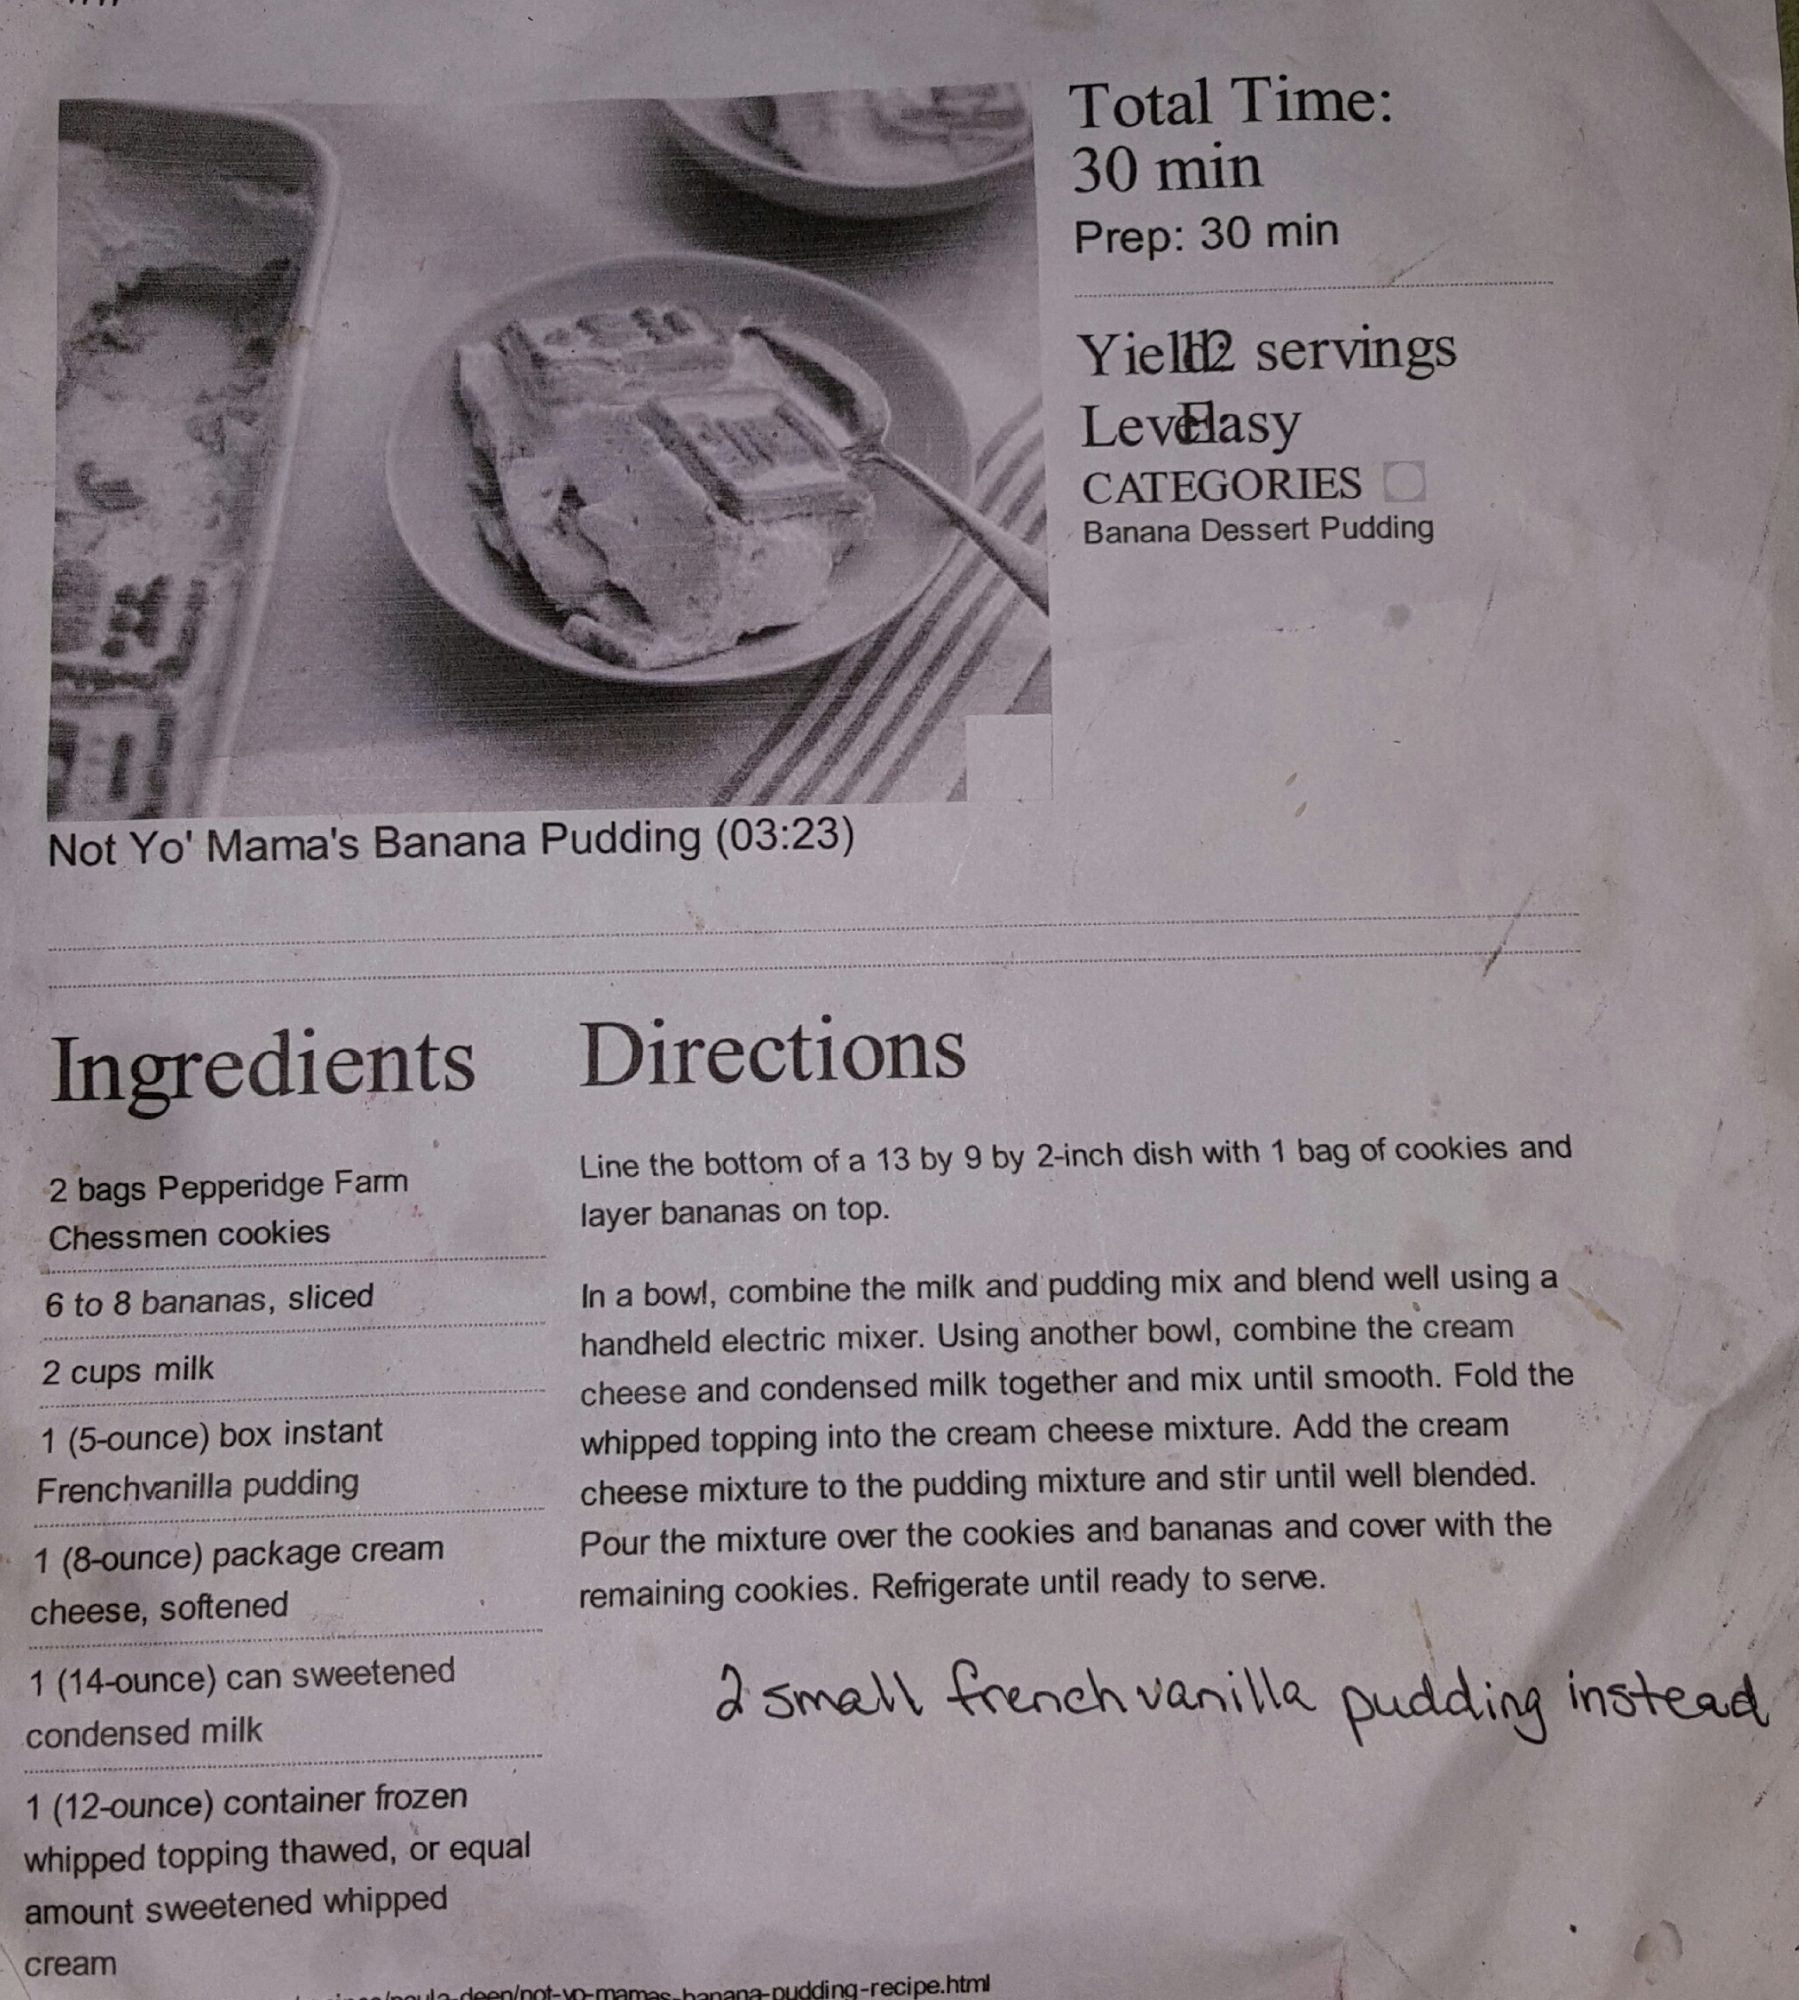 Total Time:
30 min
Prep: 30 min
Yield: 12 servings
Level: Easy
CATEGORIES
Banana Dessert Pudding
Not Yo' Mama's Banana Pudding (03:23)
Ingredients
2 bags Pepperidge Farm
Chessmen cookies
6 to 8 bananas, sliced
2 cups milk
1 (5-ounce) box instant
Frenchvanilla pudding
1 (8-ounce) package cream
cheese, softened
1 (14-ounce) can sweetened
condensed milk
1 (12-ounce) container frozen
whipped topping thawed, or equal
amount sweetened whipped
cream
Directions
Line the bottom of a 13 by 9 by 2-inch dish with 1 bag of cookies and
layer bananas on top.
In a bowl, combine the milk and pudding mix and blend well using a
handheld electric mixer. Using another bowl, combine the cream
cheese and condensed milk together and mix until smooth. Fold the
whipped topping into the cream cheese mixture. Add the cream
cheese mixture to the pudding mixture and stir until well blended.
Pour the mixture over the cookies and bananas and cover with the
remaining cookies. Refrigerate until ready to serve.
2 small french vanilla pudding instead
/paula-deen/not-yo-mamas-banana-pudding-recipe.html